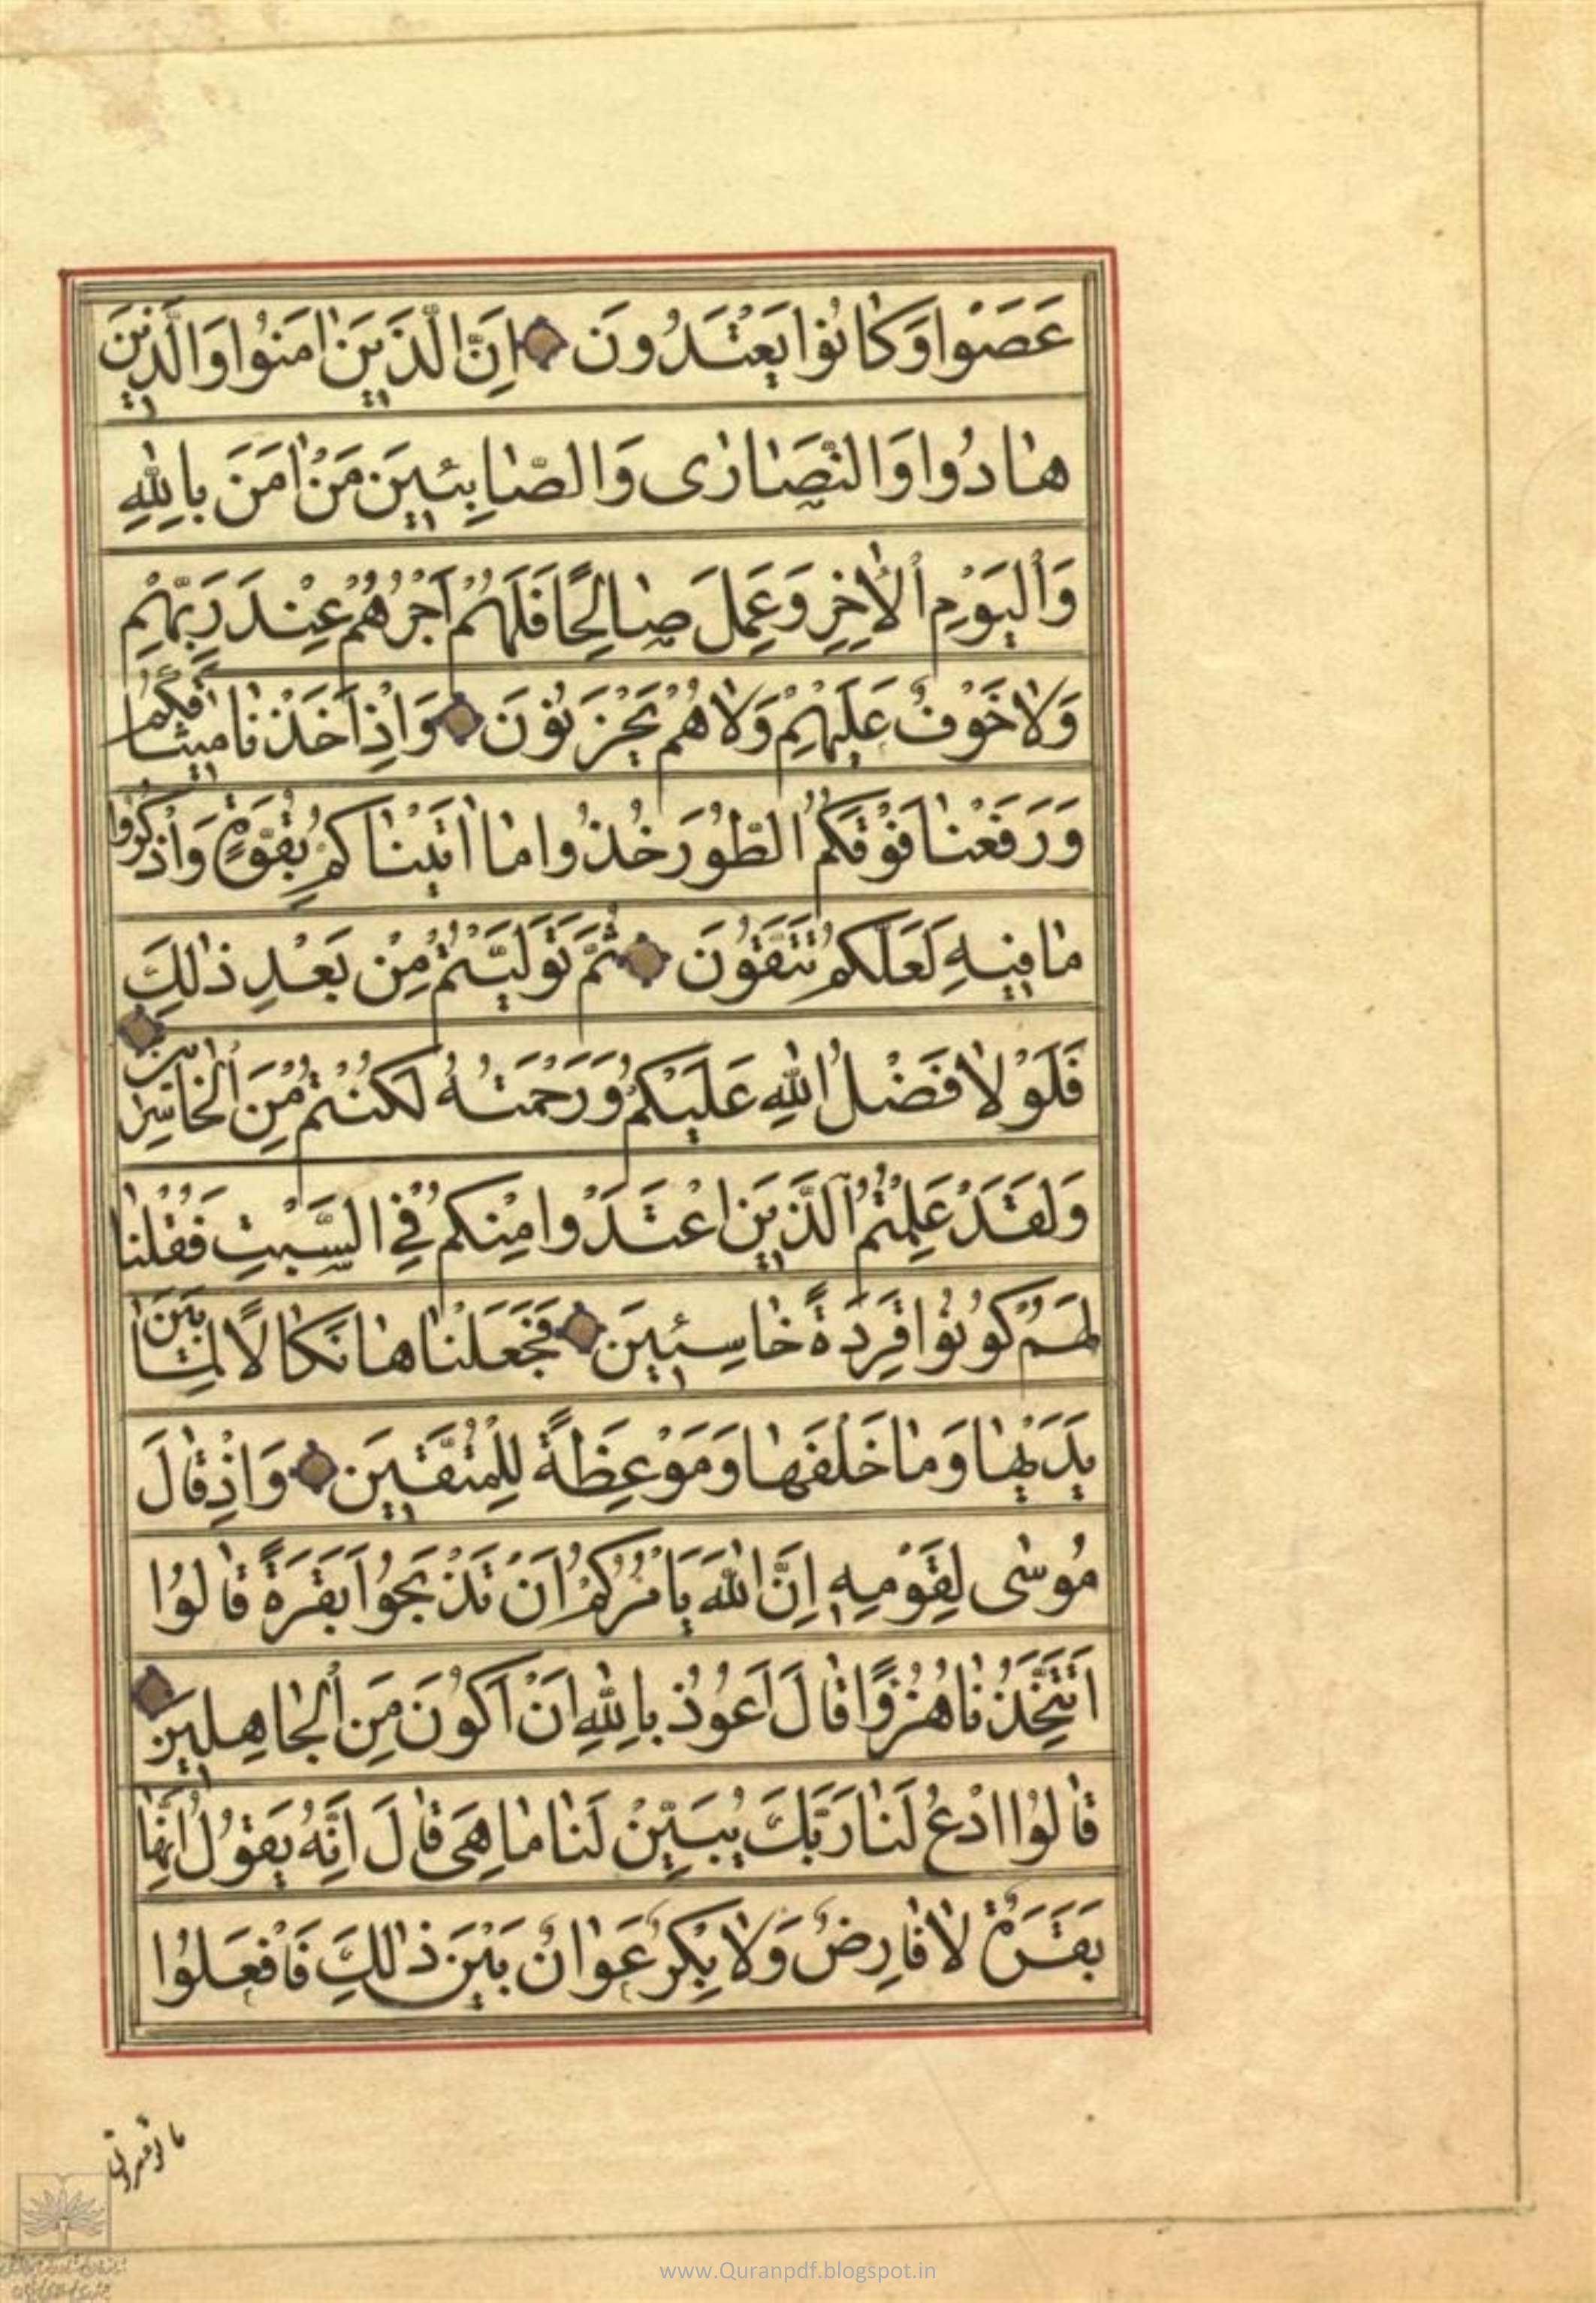 عَصَوْا وَكٰانُوا يَعْتَدُونَ اِنَّ الَّذٖينَ اٰمَنُوا وَالَّذٖينَ
هٰادُوا وَالنَّصٰارٰى وَالصّٰابِئٖينَ مَنْ اٰمَنَ بِاللّٰهِ
وَالْيَوْمِ الْاٰخِرِ وَعَمِلَ صٰالِحًا فَلَهُمْ اَجْرُهُمْ عِنْدَ رَبِّهِمْ
وَلٰا خَوْفٌ عَلَيْهِمْ وَلٰا هُمْ يَحْزَنُونَ وَاِذْ اَخَذْنٰا مٖيثٰاقَكُمْ
وَرَفَعْنٰا فَوْقَكُمُ الطُّورَ خُذُوا مٰا اٰتَيْنٰاكُمْ بِقُوَّةٍ وَاذْكُرُوا
مٰا فٖيهِ لَعَلَّكُمْ تَتَّقُونَ ثُمَّ تَوَلَّيْتُمْ مِنْ بَعْدِ ذٰلِكَ
فَلَوْلٰا فَضْلُ اللّٰهِ عَلَيْكُمْ وَرَحْمَتُهُ لَكُنْتُمْ مِنَ الْخٰاسِرٖينَ
وَلَقَدْ عَلِمْتُمُ الَّذٖينَ اعْتَدَوْا مِنْكُمْ فِي السَّبْتِ فَقُلْنٰا
لَهُمْ كُونُوا قِرَدَةً خٰاسِئٖينَ فَجَعَلْنٰاهٰا نَكٰالًا لِمٰا بَيْنَ
يَدَيْهٰا وَمٰا خَلْفَهٰا وَمَوْعِظَةً لِلْمُتَّقٖينَ وَاِذْ قٰالَ
مُوسٰى لِقَوْمِهٖ اِنَّ اللّٰهَ يَأْمُرُكُمْ اَنْ تَذْبَحُوا بَقَرَةً قٰالُوا
اَتَتَّخِذُنٰا هُزُوًا قٰالَ اَعُوذُ بِاللّٰهِ اَنْ اَكُونَ مِنَ الْجٰاهِلٖينَ
قٰالُوا ادْعُ لَنٰا رَبَّكَ يُبَيِّنْ لَنٰا مٰا هِيَ قٰالَ اِنَّهُ يَقُولُ اِنَّهٰا
بَقَرَةٌ لٰا فٰارِضٌ وَلٰا بِكْرٌ عَوٰانٌ بَيْنَ ذٰلِكَ فَافْعَلُوا
www.Quranpdf.blogspot.in